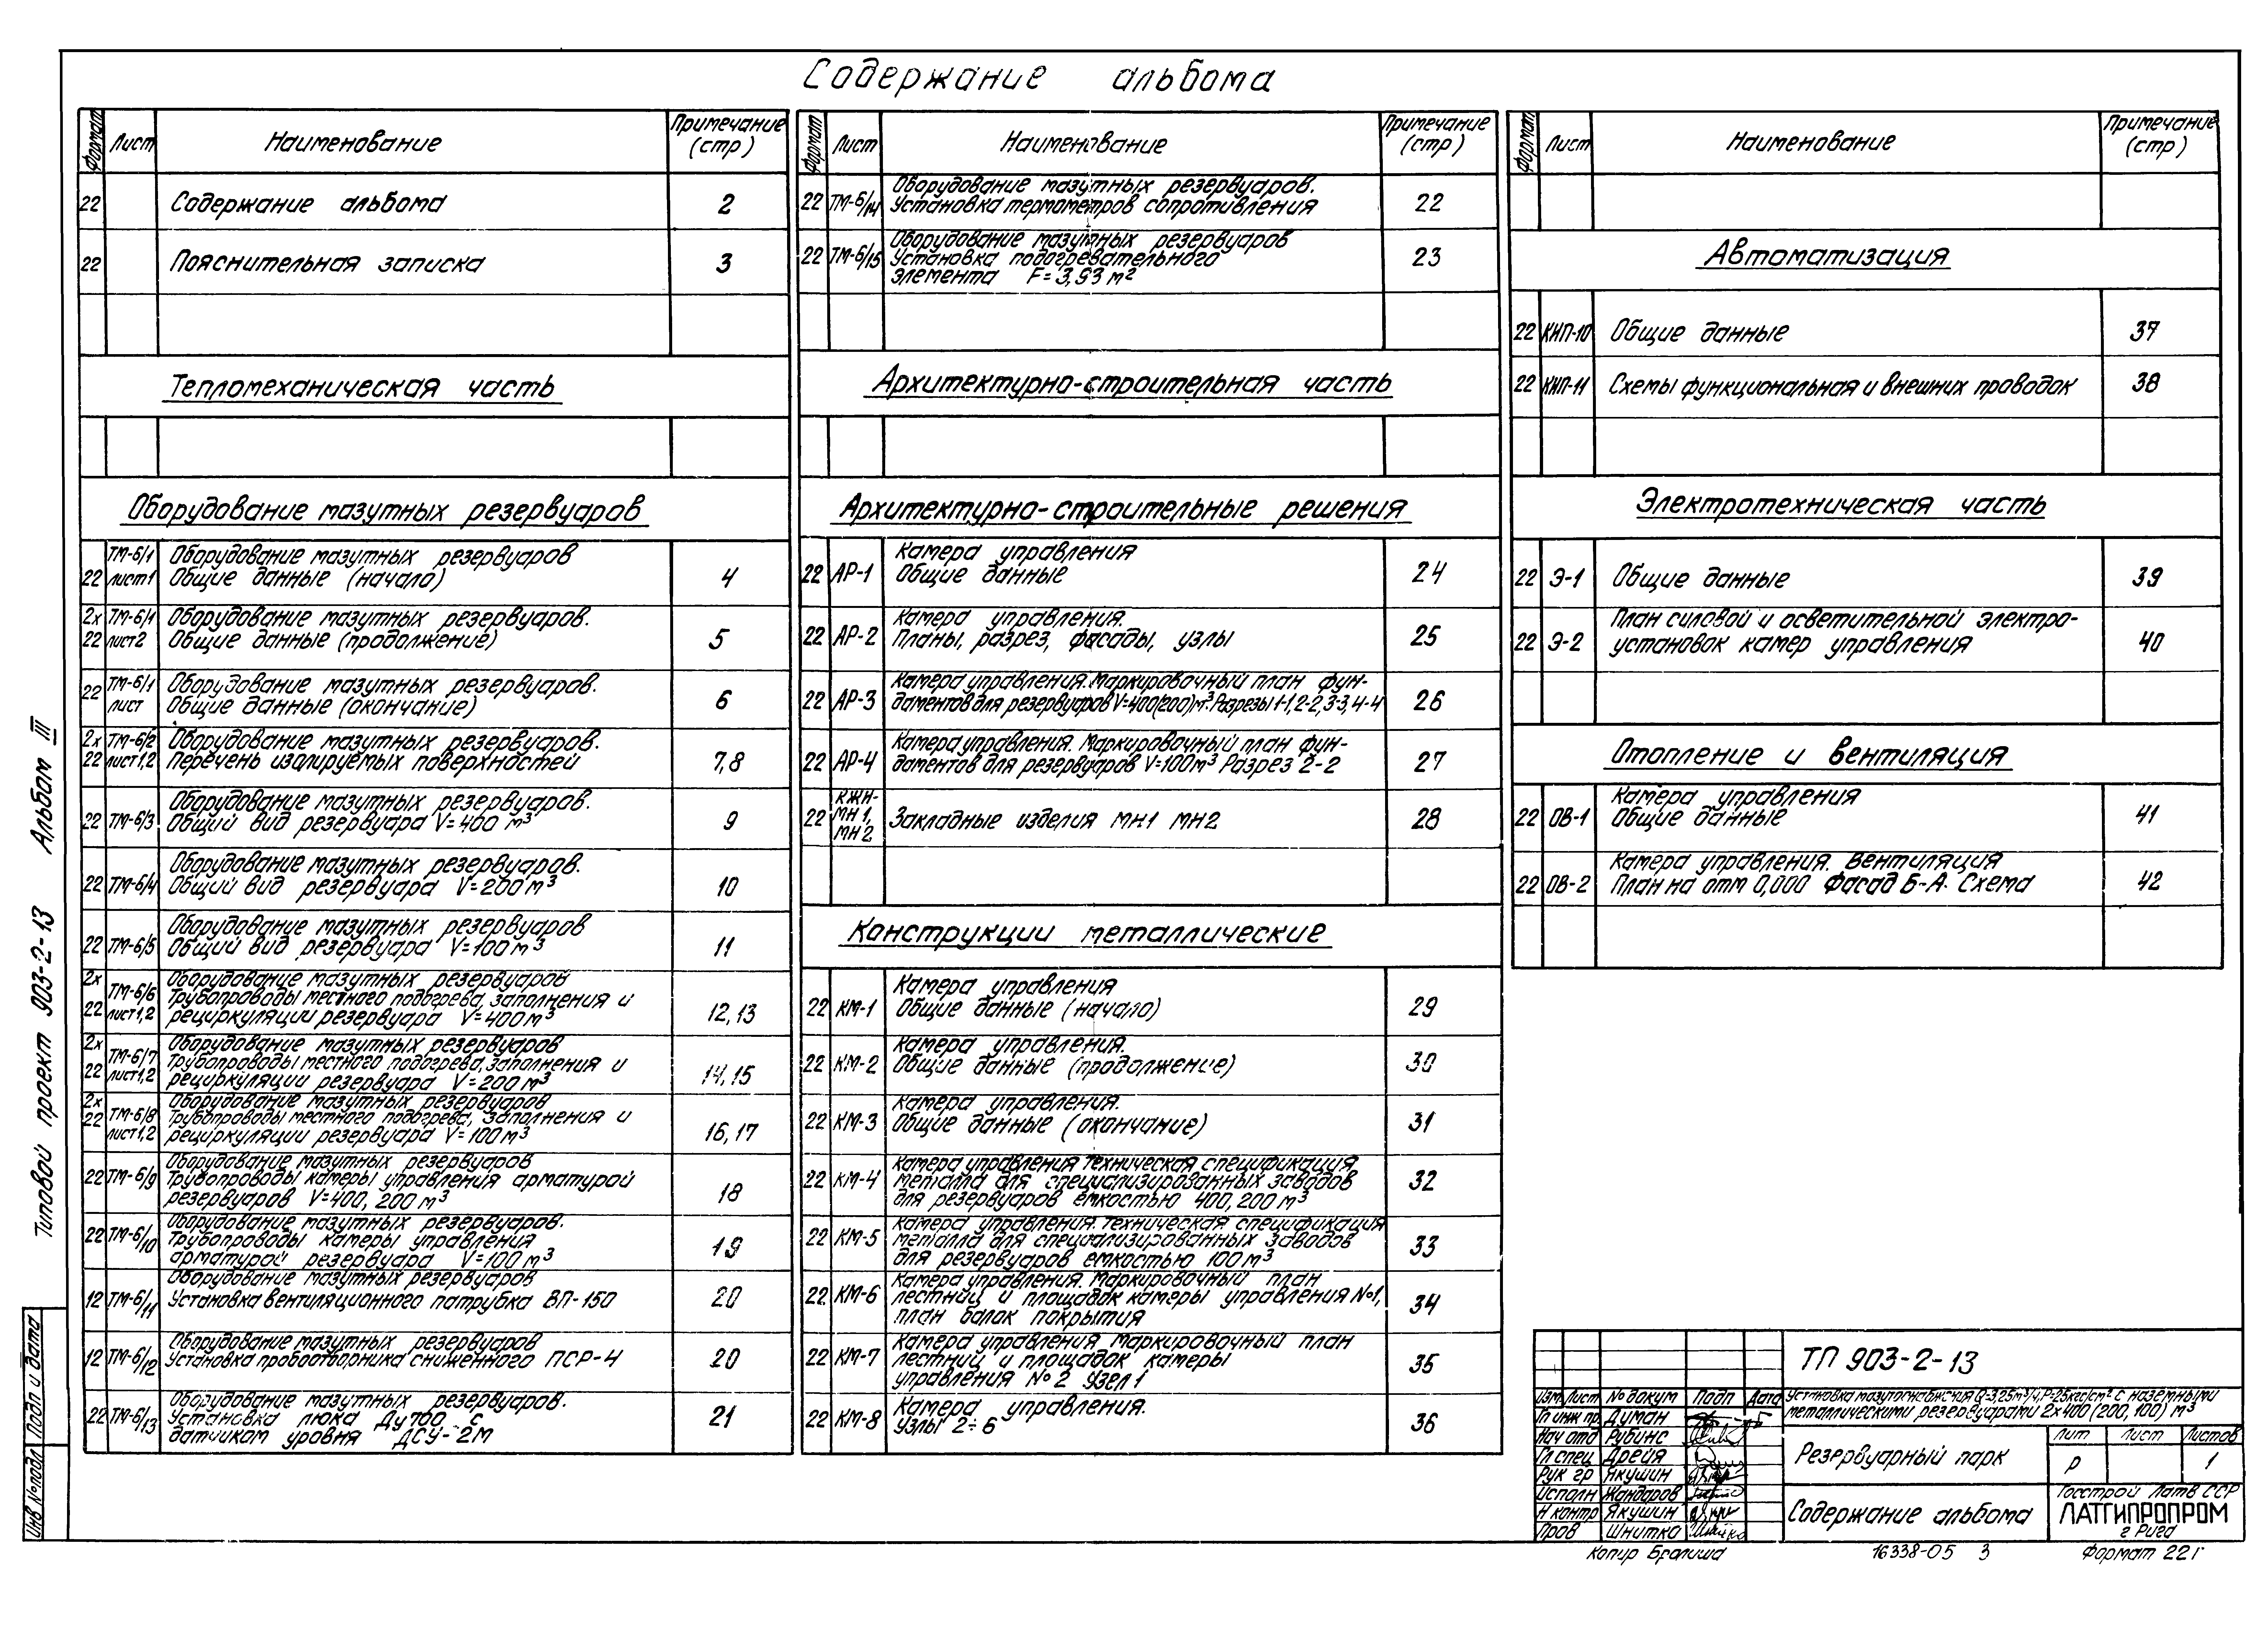 Содержание альбома
Формат Лист Наименование Примечание (стр)
22 Содержание альбома 2
22 Пояснительная записка 3
Тепломеханическая часть
Оборудование мазутных резервуаров
22 ТМ-6/1 лист1 Оборудование мазутных резервуаров
Общие данные (начало) 4
2х22 ТМ-6/1 лист2 Оборудование мазутных резервуаров.
Общие данные (продолжение) 5
22 ТМ-6/1 лист Оборудование мазутных резервуаров.
Общие данные (окончание) 6
2х22 ТМ-6/2 лист1,2 Оборудование мазутных резервуаров.
Перечень изолируемых поверхностей 7,8
22 ТМ-6/3 Оборудование мазутных резервуаров.
Общий вид резервуара V=400 м³ 9
22 ТМ-6/4 Оборудование мазутных резервуаров.
Общий вид резервуара V=200м³ 10
22 ТМ-6/5 Оборудование мазутных резервуаров
Общий вид резервуара V=100м³ 11
2х22 ТМ-6/6 лист1,2 Оборудование мазутных резервуаров
Трубопроводы местного подогрева, заполнения и
рециркуляции резервуара V=400м³ 12,13
2х22 ТМ-6/7 лист1,2 Оборудование мазутных резервуаров
Трубопроводы местного подогрева, заполнения и
рециркуляции резервуара V=200м³ 14,15
2х22 ТМ-6/8 лист1,2 Оборудование мазутных резервуаров
Трубопроводы местного подогрева, заполнения и
рециркуляции резервуара V=100м³ 16,17
22 ТМ-6/9 Оборудование мазутных резервуаров
Трубопроводы камеры управления арматурой
резервуаров V=400, 200м³ 18
22 ТМ-6/10 Оборудование мазутных резервуаров.
Трубопроводы камеры управления
арматурой резервуара V=100м³ 19
12 ТМ-6/11 Оборудование мазутных резервуаров
Установка вентиляционного патрубка ВП-150 20
12 ТМ-6/12 Оборудование мазутных резервуаров
Установка пробоотборника сниженного ПСР-4 20
22 ТМ-6/13 Оборудование мазутных резервуаров.
Установка люка Ду700 с
датчиком уровня ДСУ-2М 21
Формат Лист Наименование Примечание (стр)
22 ТМ-6/14 Оборудование мазутных резервуаров.
Установка термометров сопротивления 22
22 ТМ-6/15 Оборудование мазутных резервуаров
Установка подогревательного
элемента F=3,93м² 23
Архитектурно-строительная часть
Архитектурно-строительные решения
22 АР-1 Камера управления
Общие данные 24
22 АР-2 Камера управления.
Планы, разрез, фасады, узлы 25
22 АР-3 Камера управления. Маркировочный план фун-
даментов для резервуаров V=400(200)м³. Разрезы 1-1, 2-2, 3-3, 4-4 26
22 АР-4 Камера управления. Маркировочный план фун-
даментов для резервуаров V=100м³ Разрез 2-2 27
22 КЖИ-МН1, МН2 Закладные изделия МН1 МН2 28
Конструкции металлические
22 КМ-1 Камера управления
Общие данные (начало) 29
22 КМ-2 Камера управления.
Общие данные (продолжение) 30
22 КМ-3 Камера управления.
Общие данные (окончание) 31
22 КМ-4 Камера управления Техническая спецификация
металла для специализированных заводов
для резервуаров емкостью 400, 200м³ 32
22 КМ-5 Камера управления. Техническая спецификация
металла для специализированных заводов
для резервуаров емкостью 100м³ 33
22 КМ-6 Камера управления. Маркировочный план
лестниц и площадок камеры управления №1,
план балок покрытия 34
22 КМ-7 Камера управления Маркировочный план
лестниц и площадок камеры
управления №2 Узел 1 35
22 КМ-8 Камера управления.
Узлы 2÷6 36
Формат Лист Наименование Примечание (стр)
Автоматизация
22 КИП-10 Общие данные 37
22 КИП-11 Схемы функциональная и внешних проводок 38
Электротехническая часть
22 Э-1 Общие данные 39
22 Э-2 План силовой и осветительной электро-
установок камер управления 40
Отопление и вентиляция
22 ОВ-1 Камера управления
Общие данные 41
22 ОВ-2 Камера управления. Вентиляция
План на отм 0,000 Фасад Б-А. Схема 42
Типовой проект 903-2-13 Альбом III
Инв №подл Подп и дата
ТП 903-2-13
Изм Лист №докум Подп Дата
Установка мазутоснабжения Q=3,25м³/ч, Р=25кгс/см² с наземными
металлическими резервуарами 2х400 (200, 100) м³
Гл инж пр Думан
Нач отд Рубинс
Гл спец Дрейя
Рук гр Якушин
Исполн Жандаров
Н контр Якушин
Пров Шнитко
Резервуарный парк
Лит Лист Листов
Р 1
Содержание альбома
Госстрой Латв ССР
ЛАТГИПРОПРОМ
г Рига
Копир Бралиша 16338-05 3 Формат 22г